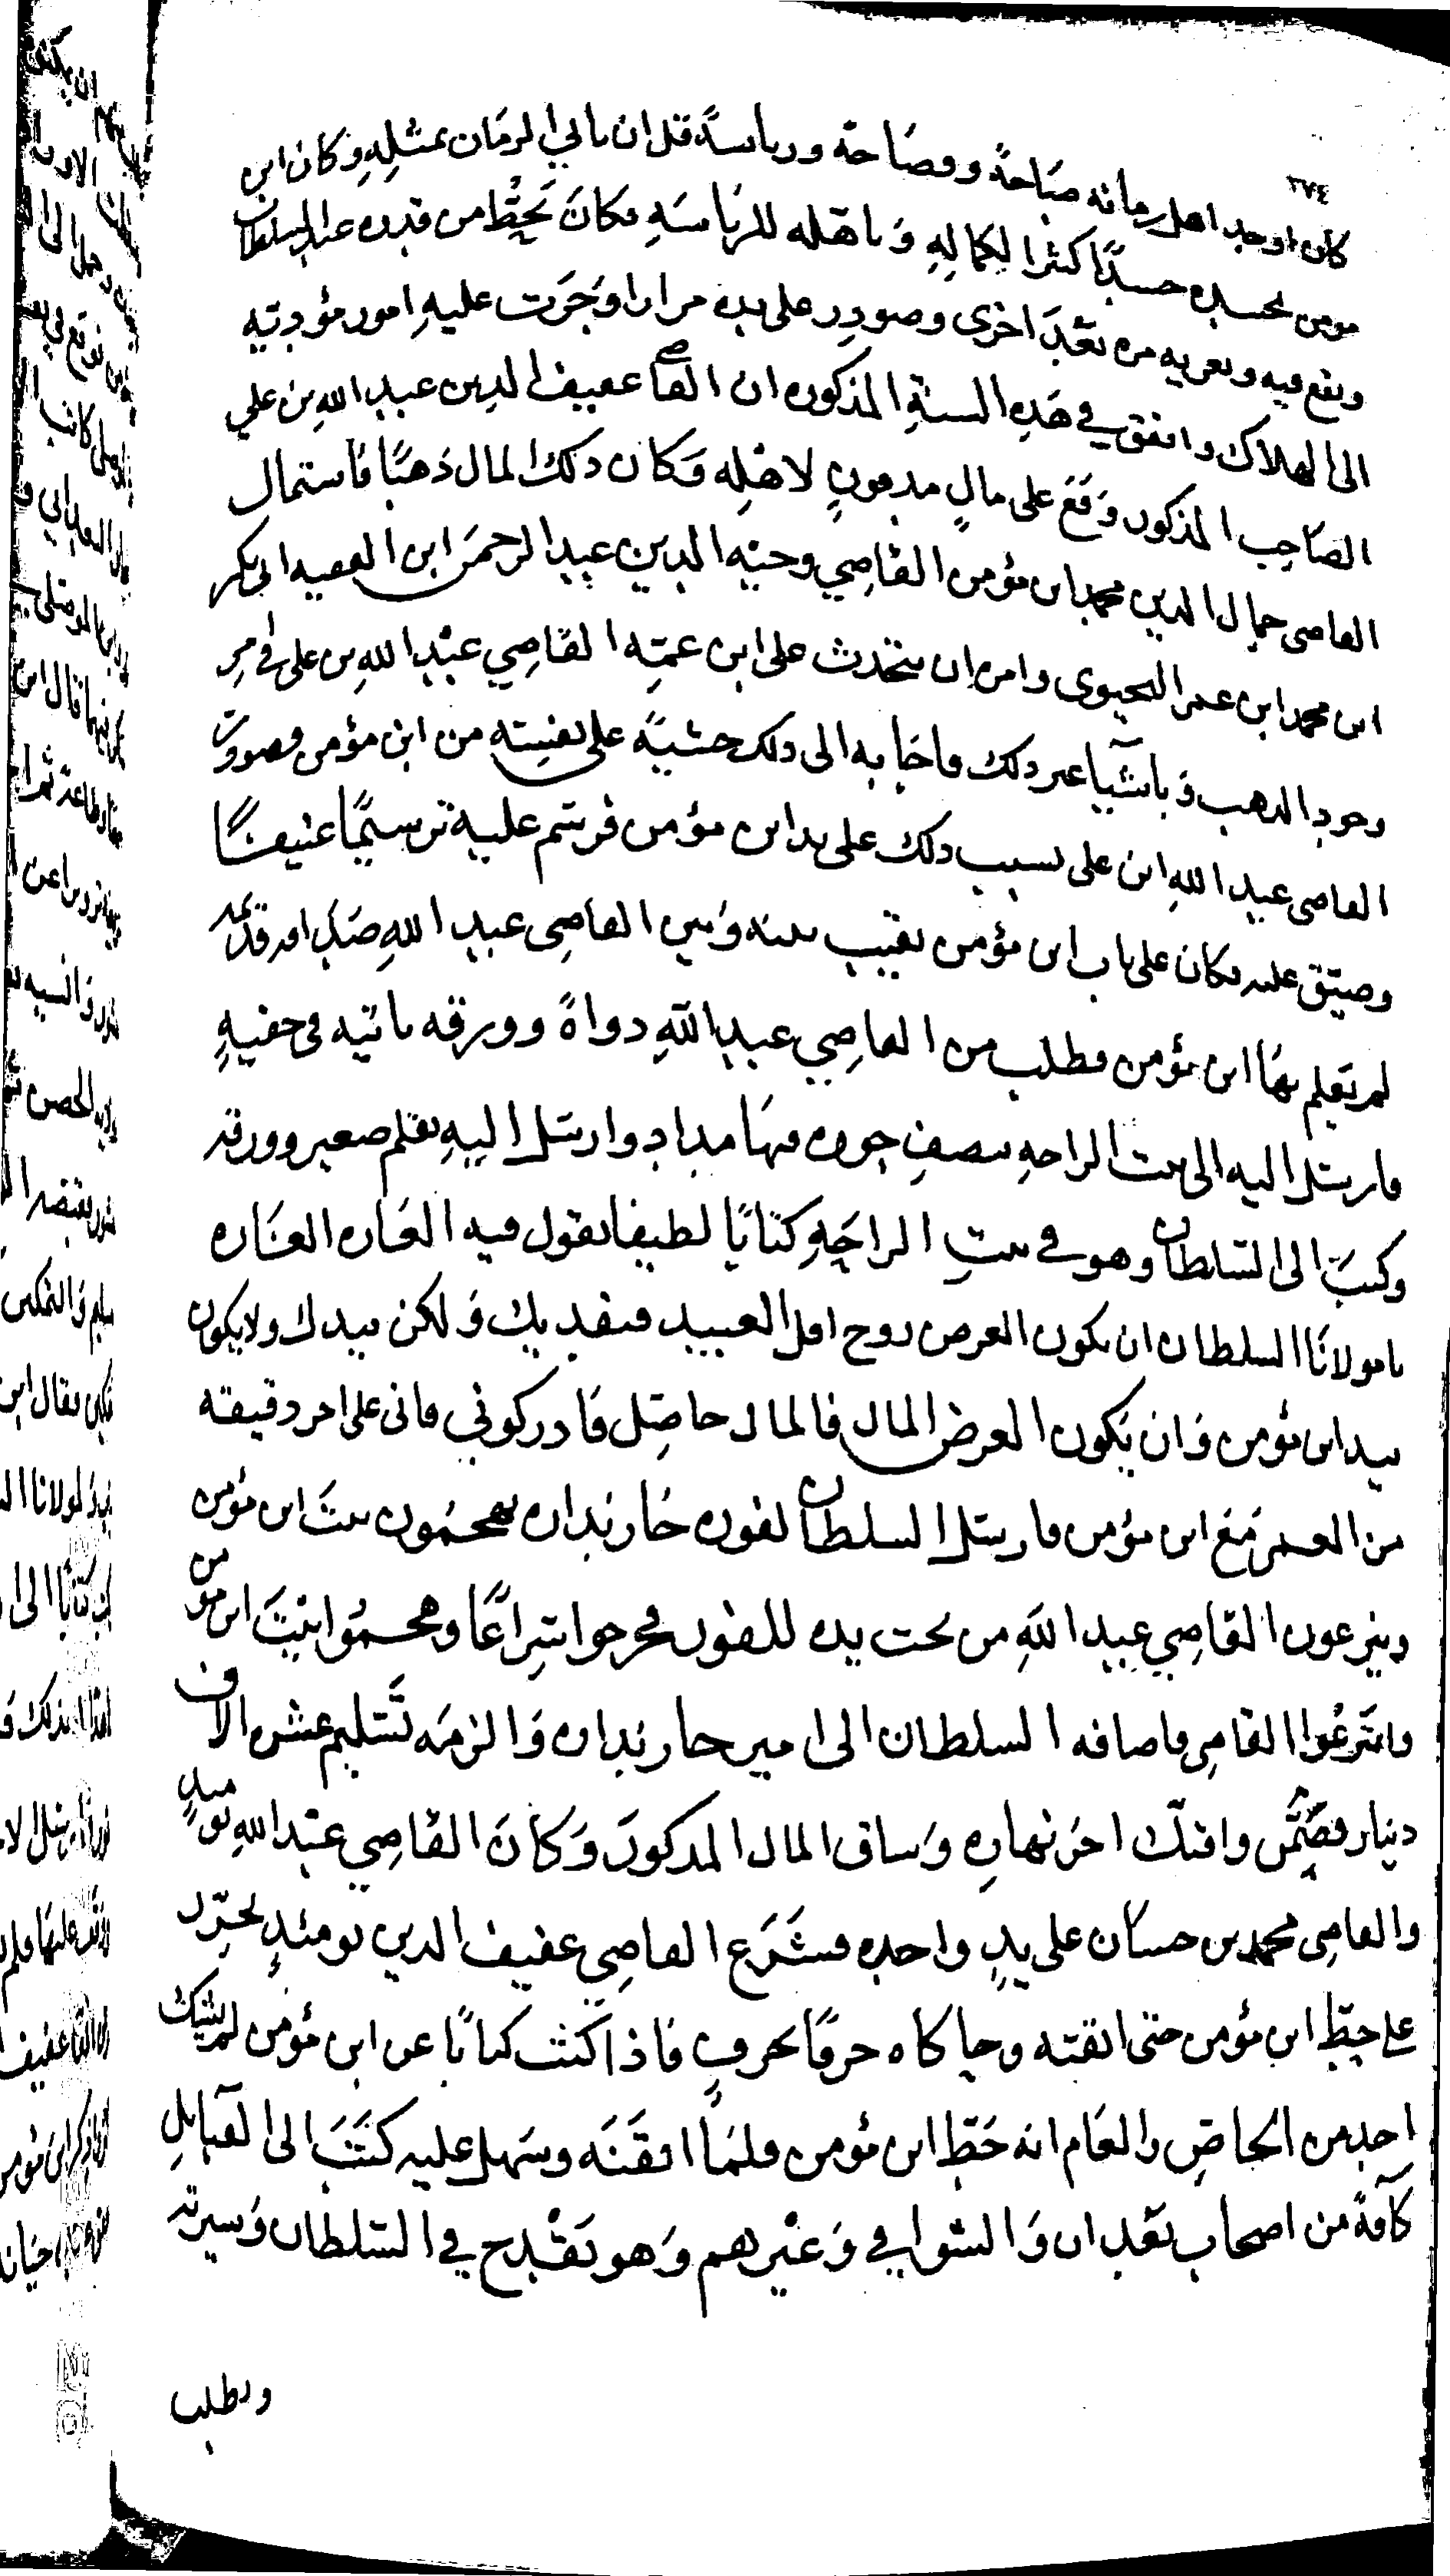 ٣٧٤
كان اوحد اهل زمانه صباحةً وفصاحة ورياسةً قل ان ياتي الزمان بمثلهِ وكان ابن
مومن يحسده حسدًا كثيرا لكمالهِ وتاهله للرياسهِ فكانَ يَحُطُّ من قدره عند السلطان
ويقع فيه ويغريه مره بَعْدَ اخرى وصودر على يده مرارا وَجَرَت عليهِ امور مؤدّيه
الى الهلاك واتفق في هَذِه السنةِ المذكوره ان القاضي عفيف الدين عبد الله بن علي
الصَاحِب المذكور وَقَعَ على مالٍ مدفونٍ لاهْلِه وَكان ذلك المال ذهبًا فاستمال
القاضى جمال الدين محمد ابن مؤمن القاضِي وجيه الدين عبد الرحمَن ابن الفقيه ابى بكر
ابن محمد ابن عمر اليحيوى وامره ان يتحدث على ابن عمّه القاضِي عبْد اللهِ بن على في امرِ
وجود الذهب وباشيآ غير ذلك فاجابه الى ذلك خشيَةً على نفسِه من ابن مؤمن فصودر
القاضى عبد اللهِ ابن على بسبب ذلك على يد ابن مؤمن فرسّم عليه ترسيمًا عنيفًا
وضيّق عليه فكان على باب ابن مؤمن نقيب بينه وَبين القاضِى عبد اللهِ صَدَاقه قديمه
لم يَعلم بهَا ابن مؤمن فطلب من القاضِي عبد اللهِ دواةً وورقه ياتيه في خفيهٍ
فارسَل اليه الى بيت الراحهِ بنصفِ جوزه فيهَا مداد وارسَل اليهِ بقلم صغير وورقه
وكتبَ الى السّلطان وهو في بيتِ الراحَةِ كتابًا لطيفا يقول فيه الغَاره الغَاره
يا مولانَا السلطان ان يكون الغرض روح اقل العبيد فيفديك وَلكن بيدك ولا يكون
بيد ابن مؤمن وَان يَكون الغرض المال فالمال حاصِل فَادركوني فانى على اخر دقيقه
من العمر مَعَ ابن مؤمن فارسَل السلطان لفوره خَازنداره يهجمُون بيتَ ابن مؤمن
وينزعون القاضِي عبد اللهِ من تحت يده للفور فخرجوا سِرَاعًا وهجمُوا بيْتَ ابن مؤمن
وانتَزعُوا القاضِى فاضافه السلطان الى امير خازنداره وَالزمَه تَسْليم عشره الاف
دينار فضمّن وافتكّ اخرَ نهارِه وَساق المال المذكورَ وَكانَ القاضِي عبْد اللهِ يومئذٍ
والقاضِى محمد بن حسّان على يدٍ واحده فشَرَع القاضِي عفيف الدين يومئذٍ يحرّر
على خطِّ ابن مؤمن حتى اتقنه وحاكاه حرفًا بحرفٍ فاذا كتبَ كتابًا عن ابن مؤمن لم يشك
احد من الخاصِ والعَام انه خَطّ ابن مؤمن فلمَّا اتقَنَه وسَهل عليه كتَبَ الى القبَايلِ
كآفةً من اصحاب بَعْدان وَالشوافي وَغيْرهم وَهو يَقْدح في السّلطان وَسيرته
ويطلب